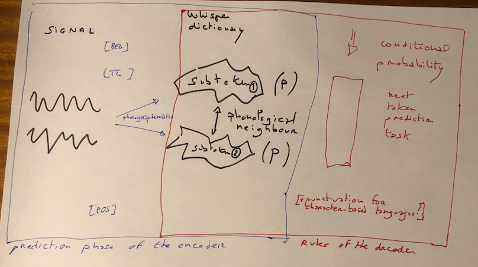 SIGNAL
[BEG]
[TL]
[EOS]
prediction phase of the encoder
Whispe
dictionary
subtoken 1 (P)
phonological
neighbour
subtoken 2 (P)
conditional
probability
next
token
prediction
task
[+punctuation for
character-based languages?]
Rules of the decoder